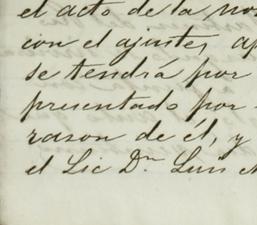 el acto de la no
con el ajuste, ap
se tendrá por
presentado por
rason de él, y
el Lic Dn Luis